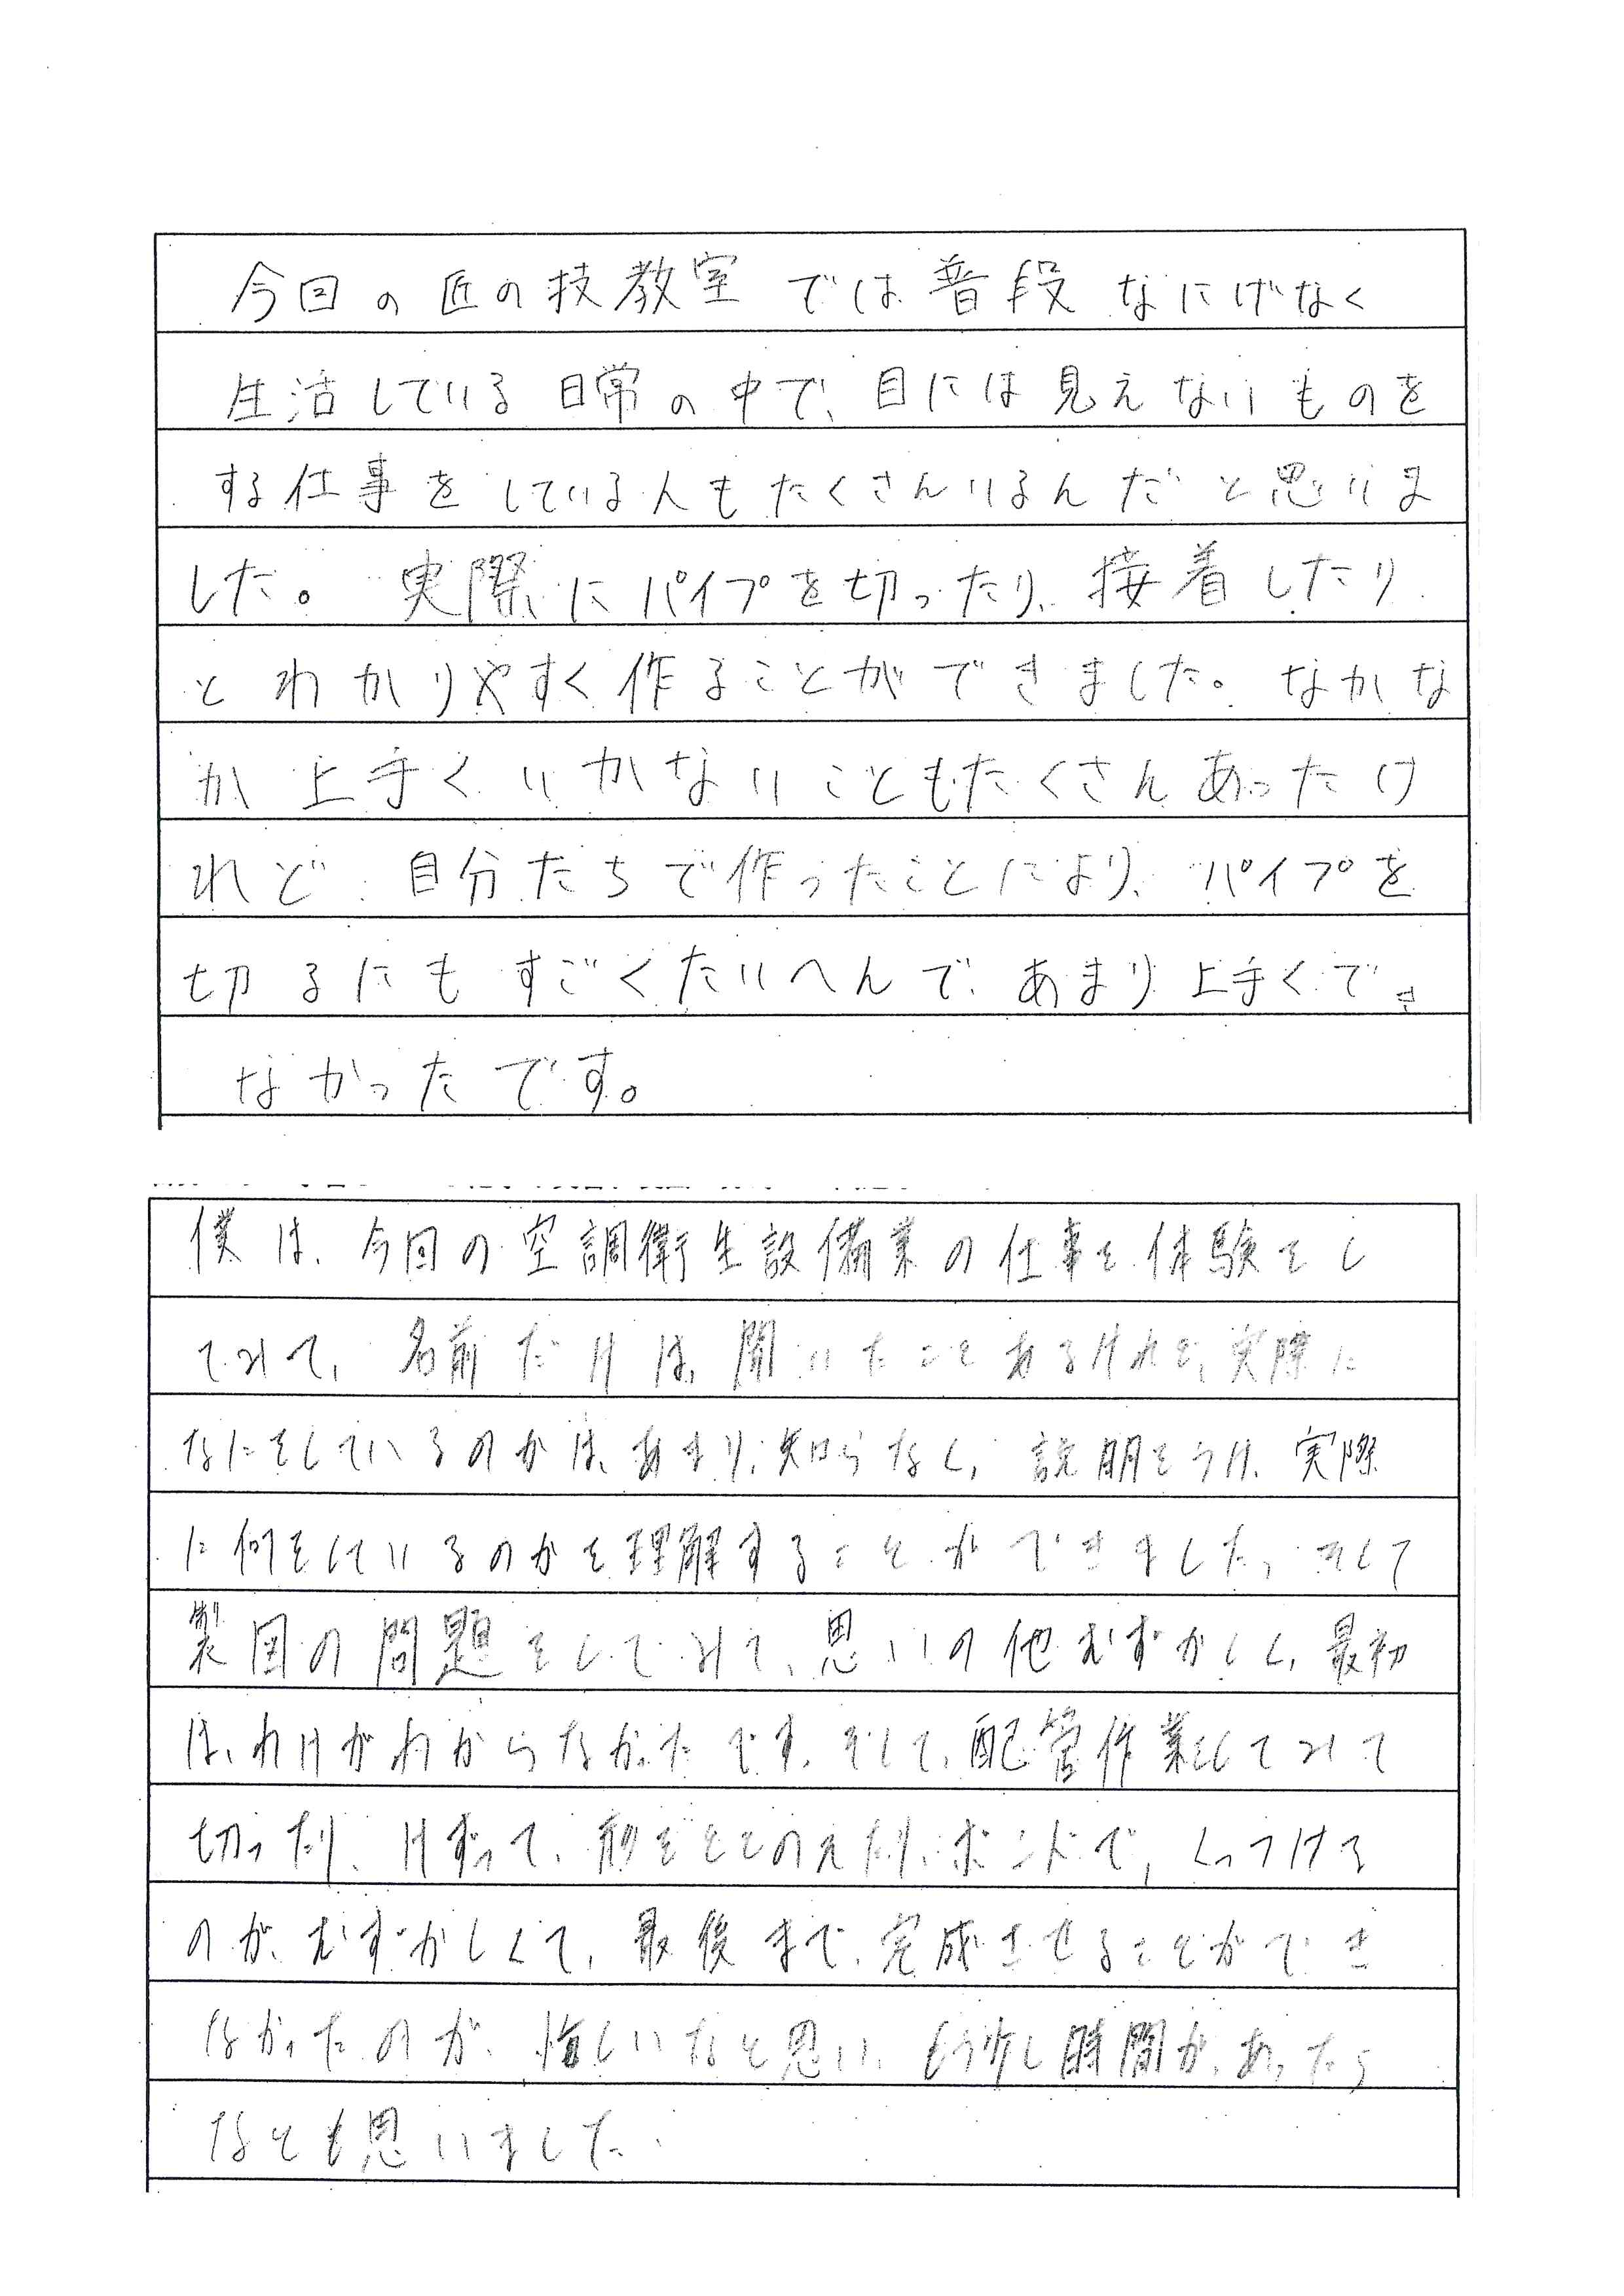 今回の匠の技教室では普段なにげなく
生活している日常の中で、目には見えないものを
する仕事をしている人もたくさんいるんだと思いま
した。実際にパイプを切ったり、接着したり
とわかりやすく作ることができました。なかな
か上手くいかないこともたくさんあったけ
れど、自分たちで作ったことにより、パイプを
切るにもすごくたいへんで、あまり上手くでき
なかったです。
僕は、今回の空調衛生設備業の仕事を体験をし
てみて、名前だけは、聞いたことあるけれど、実際に
なにをしているのかは、あまり、知らなく、説明をうけ、実際
に何をしているのかを理解することができました、そして
製図の問題をしてみて、思いの他むずかしく、最初
は、わけがわからなかったです。そして、配管作業をしてみて
切ったり、けずって、形をととのえたり、ボンドで、くっつける
のが、むずかしくて、最後まで、完成させることができ
なかったのが、悔しいなと思い、もう少し時間が、あったら
なとも思いました